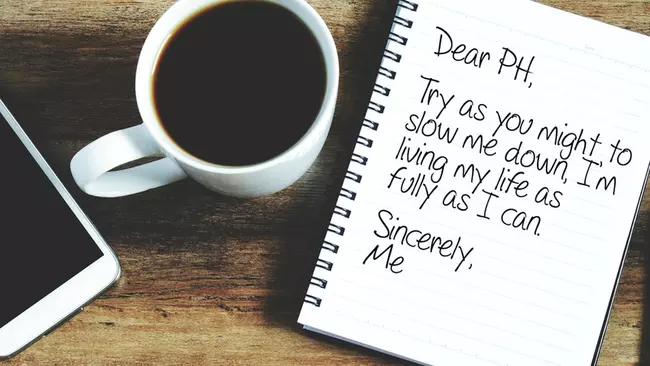 Dear PH,
Try as you might to
slow me down, I'm
living my life as
fully as I can.
Sincerely,
Me